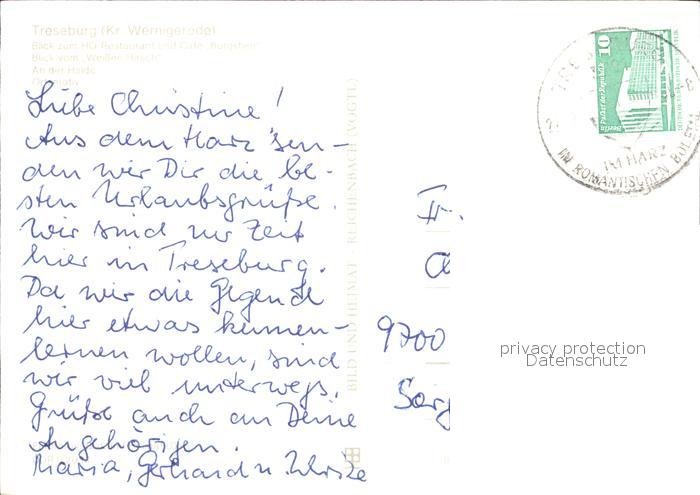 Treseburg (Kr. Wernigerode)
Blick zum HO-Restaurant und Café "Burgsher"
Blick vom "Weißen Hirsch"
An der Halde
Liebe Christine!
Aus dem Harz sen-
den wir Dir die be-
sten Urlaubsgrüße.
Wir sind zur Zeit
hier in Treseburg.
Da wir die Gegend
hier etwas kennen-
lernen wollen, sind
wir viel unterwegs.
Grüße auch an Deine
Angehörigen.
Maria, Gerhard u. Ulrike
BILD UND HEIMAT REICHENBACH (VOGTL)
10
IM HARZ
IM ROMANTISCHEN BODETAL
Fr.
9700
privacy protection
Datenschutz